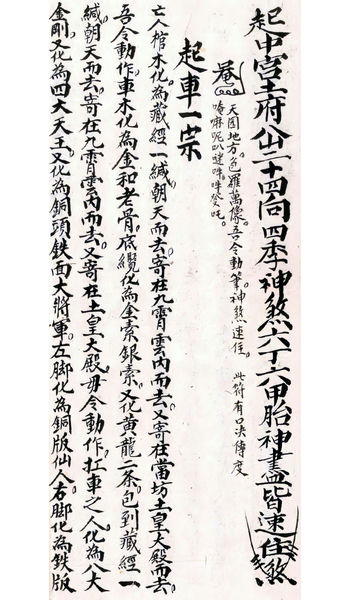 起中宮土府公二十四向四季神煞六丁六甲胎神盡皆速住煞
庵
天圓地方。色羅萬像。吾令動筆。神煞速住。 此符有口決傳度
唵嘛呢叭𠺗吽吽發吒。
起車一宗
亡人棺木化為藏經一緘朝天而去寄在九霄雲內而去又寄在當坊土皇大殿而去
吾令動作。車木化為金和老骨。底纜化為金索銀索。又化黃龍二条包到藏經一
緘朝天而去。寄在九霄雲內而去又寄在土皇大殿毋令動作。扛車之人化為八大
金剛。又化為四大天王又化為銅頭鉄面大將軍。左脚化為銅版仙人。右脚化為鉄版